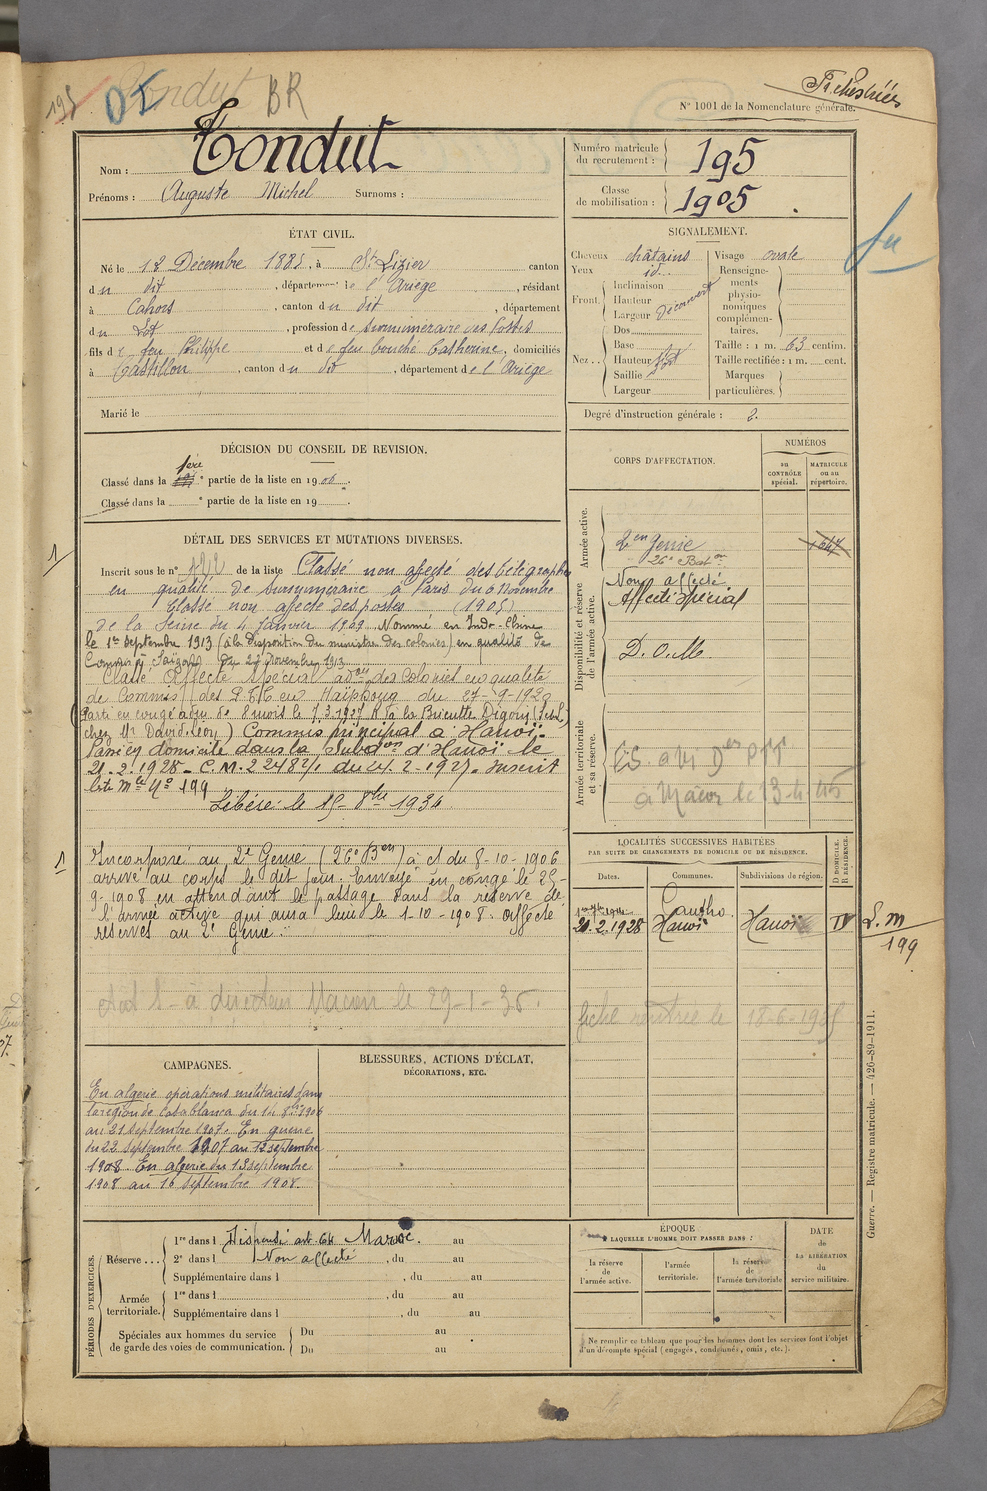 195
Condut BR
N° 1001 de la Nomenclature générale.
Nom : Condut
Prénoms : Auguste Michel Surnoms :
Numéro matricule du recrutement : 195
Classe de mobilisation : 1905
ÉTAT CIVIL.
Né le 12 Décembre 1885, à St Lizier canton
du dit, département de l'Ariège, résidant
à Cahors, canton du dit, département
du Lot, profession de surnuméraire des Postes
fils de feu Philippe et de feu Catherine, domiciliés
à Castillon, canton du dit, département de l'Ariège
Marié le
SIGNALEMENT.
Cheveux châtains Visage ovale
Yeux id. Renseignements physionomiques complémentaires.
Front. Inclinaison
Hauteur
Largeur Découvert
Dos
Nez.. Base
Hauteur
Saillie
Largeur
Taille : 1 m. 63 centim.
Taille rectifiée : 1 m. cent.
Marques particulières.
Degré d'instruction générale : 2.
DÉCISION DU CONSEIL DE REVISION.
Classé dans la 1ère partie de la liste en 1906.
Classé dans la e partie de la liste en 19
CORPS D'AFFECTATION.
NUMÉROS
au CONTRÔLE spécial.
MATRICULE ou au répertoire.
Armée active.
2en Génie
26e Baton
Disponibilité et réserve de l'armée active.
Non affecté
Affecté spécial
D.O.M.
Armée territoriale et sa réserve.
à Mâcon le 13-4-45
DÉTAIL DES SERVICES ET MUTATIONS DIVERSES.
Inscrit sous le n° de la liste Classé non affecté des télégraphes
en qualité de surnuméraire à Paris du 6 Novembre
Classé non affecté des postes (1905)
de la Seine du 4 Janvier 1909 Nommé en Indo-Chine
le 1er septembre 1913 (à la disposition du ministre des colonies) en qualité de
Commis à Saïgon du 24 Novembre 1913
Classé Affecté Spécial adon des Colonies en qualité
de Commis des P.T.T. en Haïphong du 27-9-1920
Parti en congé adm de 8 mois le 7.3.1927
chez Mr David Léon) Commis principal à Hanoï.
domicile dans la Subdon d'Hanoï le
21.2.1928. C.M. 22482/1 du 24.2.1927. Inscrit
liste Mle N° 199
Libéré le 15 8bre 1934
Incorporé au 2e Génie (26e Bon) à ct du 8-10-1906
arrivé au corps le dit jour. Envoyé en congé le 25-
9-1908 en attendant le passage dans la réserve de
l'armée active qui aura lieu le 1-10-1908. Affecté
réserves au 2e Génie.
à directeur Macon le 29-1-35.
LOCALITÉS SUCCESSIVES HABITÉES
PAR SUITE DE CHANGEMENTS DE DOMICILE OU DE RÉSIDENCE.
Dates. Communes. Subdivisions de région. D DOMICILE. R RÉSIDENCE.
Cantho.
21.2.1928 Hanoï Hanoï D
L.M
199
fiche rentrée le 18-6-1935
CAMPAGNES.
En algérie opérations militaires dans
la région de Casablanca du 14 8bre 1906
au 21 septembre 1907. En guerre
du 22 septembre 1907 au 12 septembre
1908. En algérie du 13 septembre
1908 au 16 septembre 1908.
BLESSURES, ACTIONS D'ÉCLAT, DÉCORATIONS, ETC.
PÉRIODES D'EXERCICES.
Réserve... 1re dans l Dispensé art. 64 Maroc. au
2e dans l Non affecté, du au
Supplémentaire dans l, du au
Armée territoriale. 1re dans l, du au
Supplémentaire dans l, du au
Spéciales aux hommes du service de garde des voies de communication. Du au
Du au
ÉPOQUE
LAQUELLE L'HOMME DOIT PASSER DANS :
la réserve de l'armée active.
l'armée territoriale.
la réserve de l'armée territoriale
DATE de LA LIBÉRATION du service militaire.
Ne remplir ce tableau que pour les hommes dont les services font l'objet
d'un décompte spécial (engagés, condamnés, omis, etc.).
Guerre. — Registre matricule. — 426-89-1911.